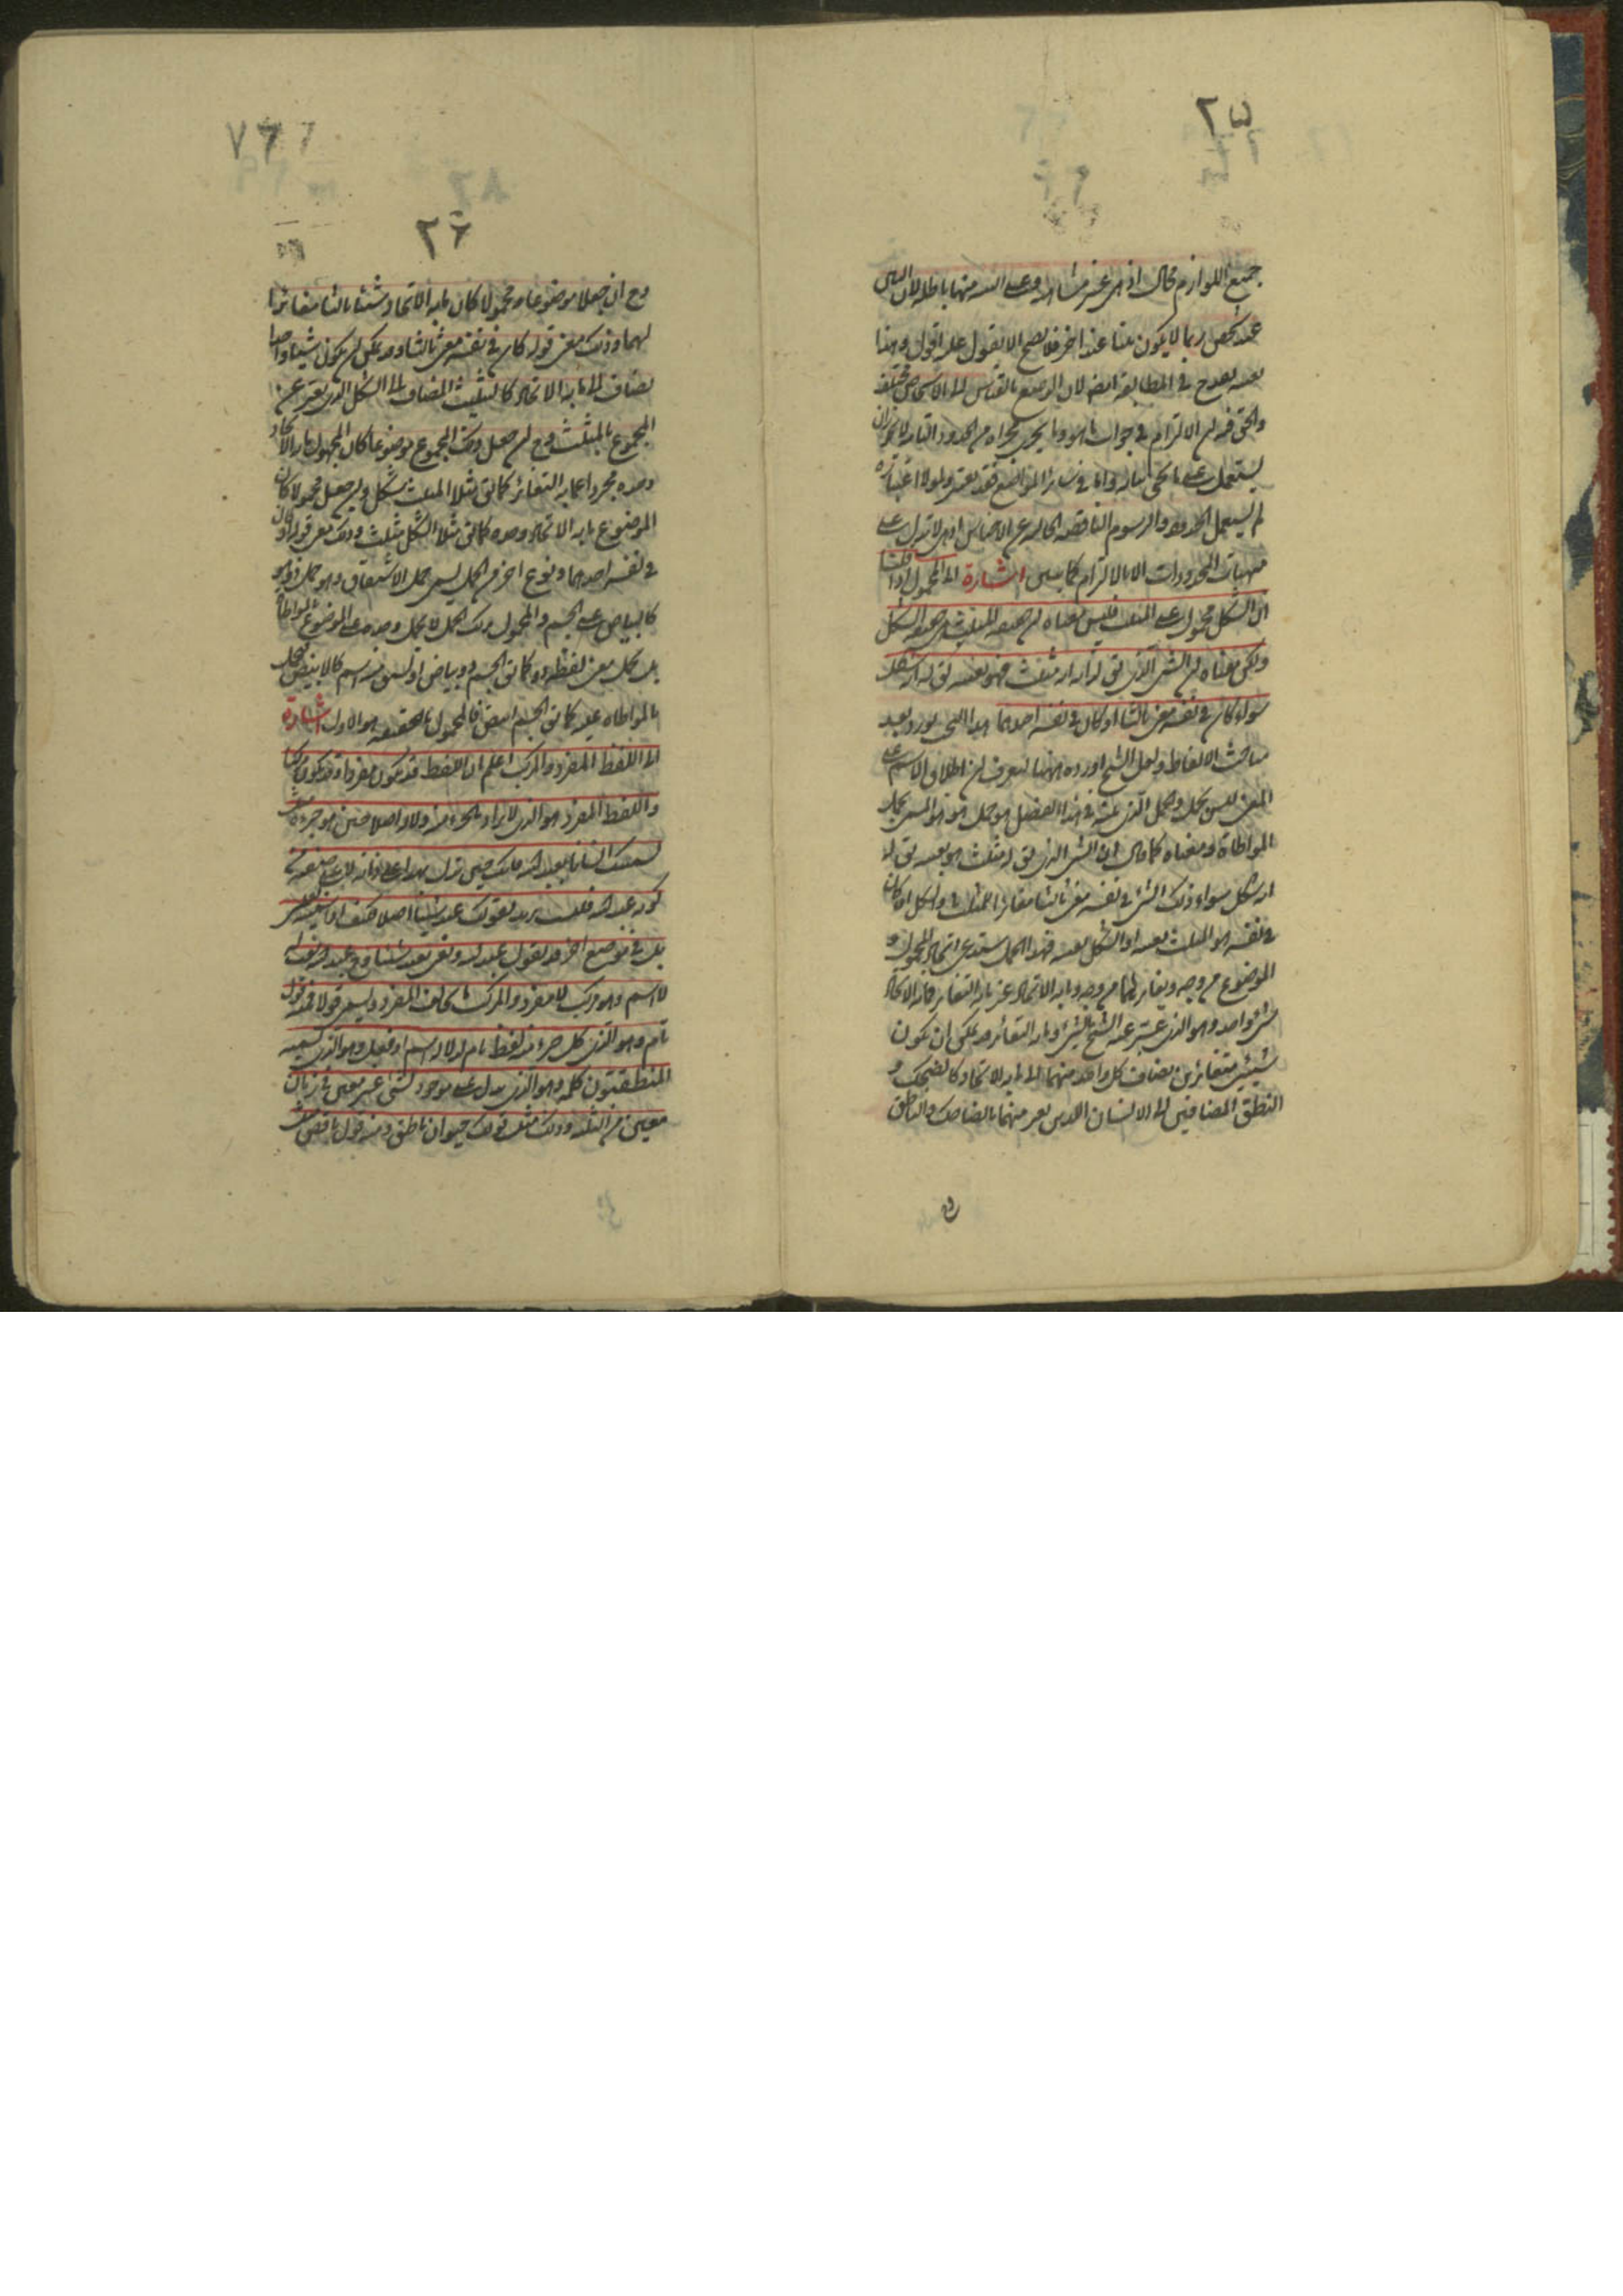 ٢٥
جميع اللوازم محال اذ هى غير متناهية وعلى البينة منها باطلة لان البين
عند شخص ربما لا يكون بينا عند اخر فلا يصح الا يعول عليه اقول وهذا
بعينه يقدح فى المطابقة ايضا لان الوضع بالقياس الى الاشخاص مختلف
والحق فيه ان الالتزام فى جواب ما هو وما يجرى مجراه من الحدود التامة لا يجوز ان
يستعمل على ما يجئ بيانه واما فى سائر المواضع فقد يعتبر ولولا اعتباره
لم يستعمل الحدود والرسوم الناقصة الخالية عن الاجناس اذ هى لا تدل على
مهيات المحدودات الا بالالتزام كما يتبين اشارة الى المحمول اذا قلنا
ان الشكل محمول على المثلث فليس معناه ان حقيقة المثلث هى حقيقة الشكل
ولكن معناه ان الشئ الذى يق له انه مثلث فهو بعينه يق له انه شكل
سواء كان فى نفسه معنى ثالثا او كان فى نفسه احدهما هذا البحث يورد بعد
مباحث الالفاظ ولعل الشيخ اورده ههنا ليعرف ان اطلاق الاسم على
المعنى ليس بحمل والحمل الذى بينه فى هذا الفصل هو حمل هو هو المسمى بحمل
المواطاة ومعناه كما قال ان الشئ الذى يق له مثلث هو بعينه يق له
انه شكل سواء ذلك الشئ فى نفسه معنى ثالثا مغايرا للمثلث والشكل او كان
فى نفسه هو المثلث بعينه او الشكل بعينه فهذا الحمل يستدعى اتحاد المحمول و
الموضوع من وجه وتغايرهما من وجه وما به الاتحاد غير ما به التغاير فما به الاتحاد
شئ واحد وهو الذى عبر عنه الشيخ بالشئ وما به التغاير قد يمكن ان يكون
شيئين متغايرين يضاف كل واحد منهما الى ما به الاتحاد كالضحك و
النطق المضافين الى الانسان اللذين يعبر عنهما بالضاحك والناطق
٢٦
وح ان جعلا موضوعا ومحمولا كان ما به الاتحاد شيئا ثالثا مغايرا
لهما وذلك معنى قوله كان فى نفسه معنى ثالثا وقد يمكن ان يكون شيئا واحدا
يضاف الى ما به الاتحاد كالتثليث المضاف الى الشكل الذى يعبر عن
المجموع بالمثلث وح ان جعل ذلك المجموع موضوعا كان المحمول ما به الاتحاد
وحده مجردا عما به التغاير كما يق مثلا المثلث شكل وان جعل محمولا كان
الموضوع ما به الاتحاد وحده كما يق مثلا الشكل مثلث وذلك معنى قوله او كان
فى نفسه احدهما ونوع اخر من الحمل يسمى حمل الاشتقاق وهو حمل ذو هو
كالبياض على الجسم والمحمول بذلك الحمل لا يحمل وحده على الموضوع بالمواطاة
بل يحمل مع لفظة ذو كما يق الجسم ذو بياض او يشتق منه اسم كالابيض فيحمل
بالمواطاة عليه كما يق الجسم ابيض فالمحمول بالحقيقة هو الاول اشارة
الى اللفظ المفرد والمركب اعلم ان اللفظ قد يكون مفردا وقد يكون مركبا
واللفظ المفرد هو الذى لا يراد بالجزء منه دلالة اصلا حين هو جزءه مثل
تسميتك انسانا بعبد الله فانك حين تدل بهذا على ذاته لا على صفته من
كونه عبد الله فلست تريد بقولك عبد شيئا اصلا فكيف اذا سميته بعيسى
بلى فى موضع اخر قد تقول عبد الله وتعنى بعبد شيئا وح عبد الله نعت له
لا اسم وهو مركب لا مفرد والمركب ما يخالف المفرد ويسمى قولا فمنه قول
تام وهو الذى كل جزء منه لفظ تام الدلالة اسم او فعل وهو الذى يسميه
المنطقيون كلمة وهو الذى يدل على موجود لشئ غير معين فى زمان
معين من الثلثة وذلك مثل قولك حيوان ناطق ومنه قول ناقص مثل